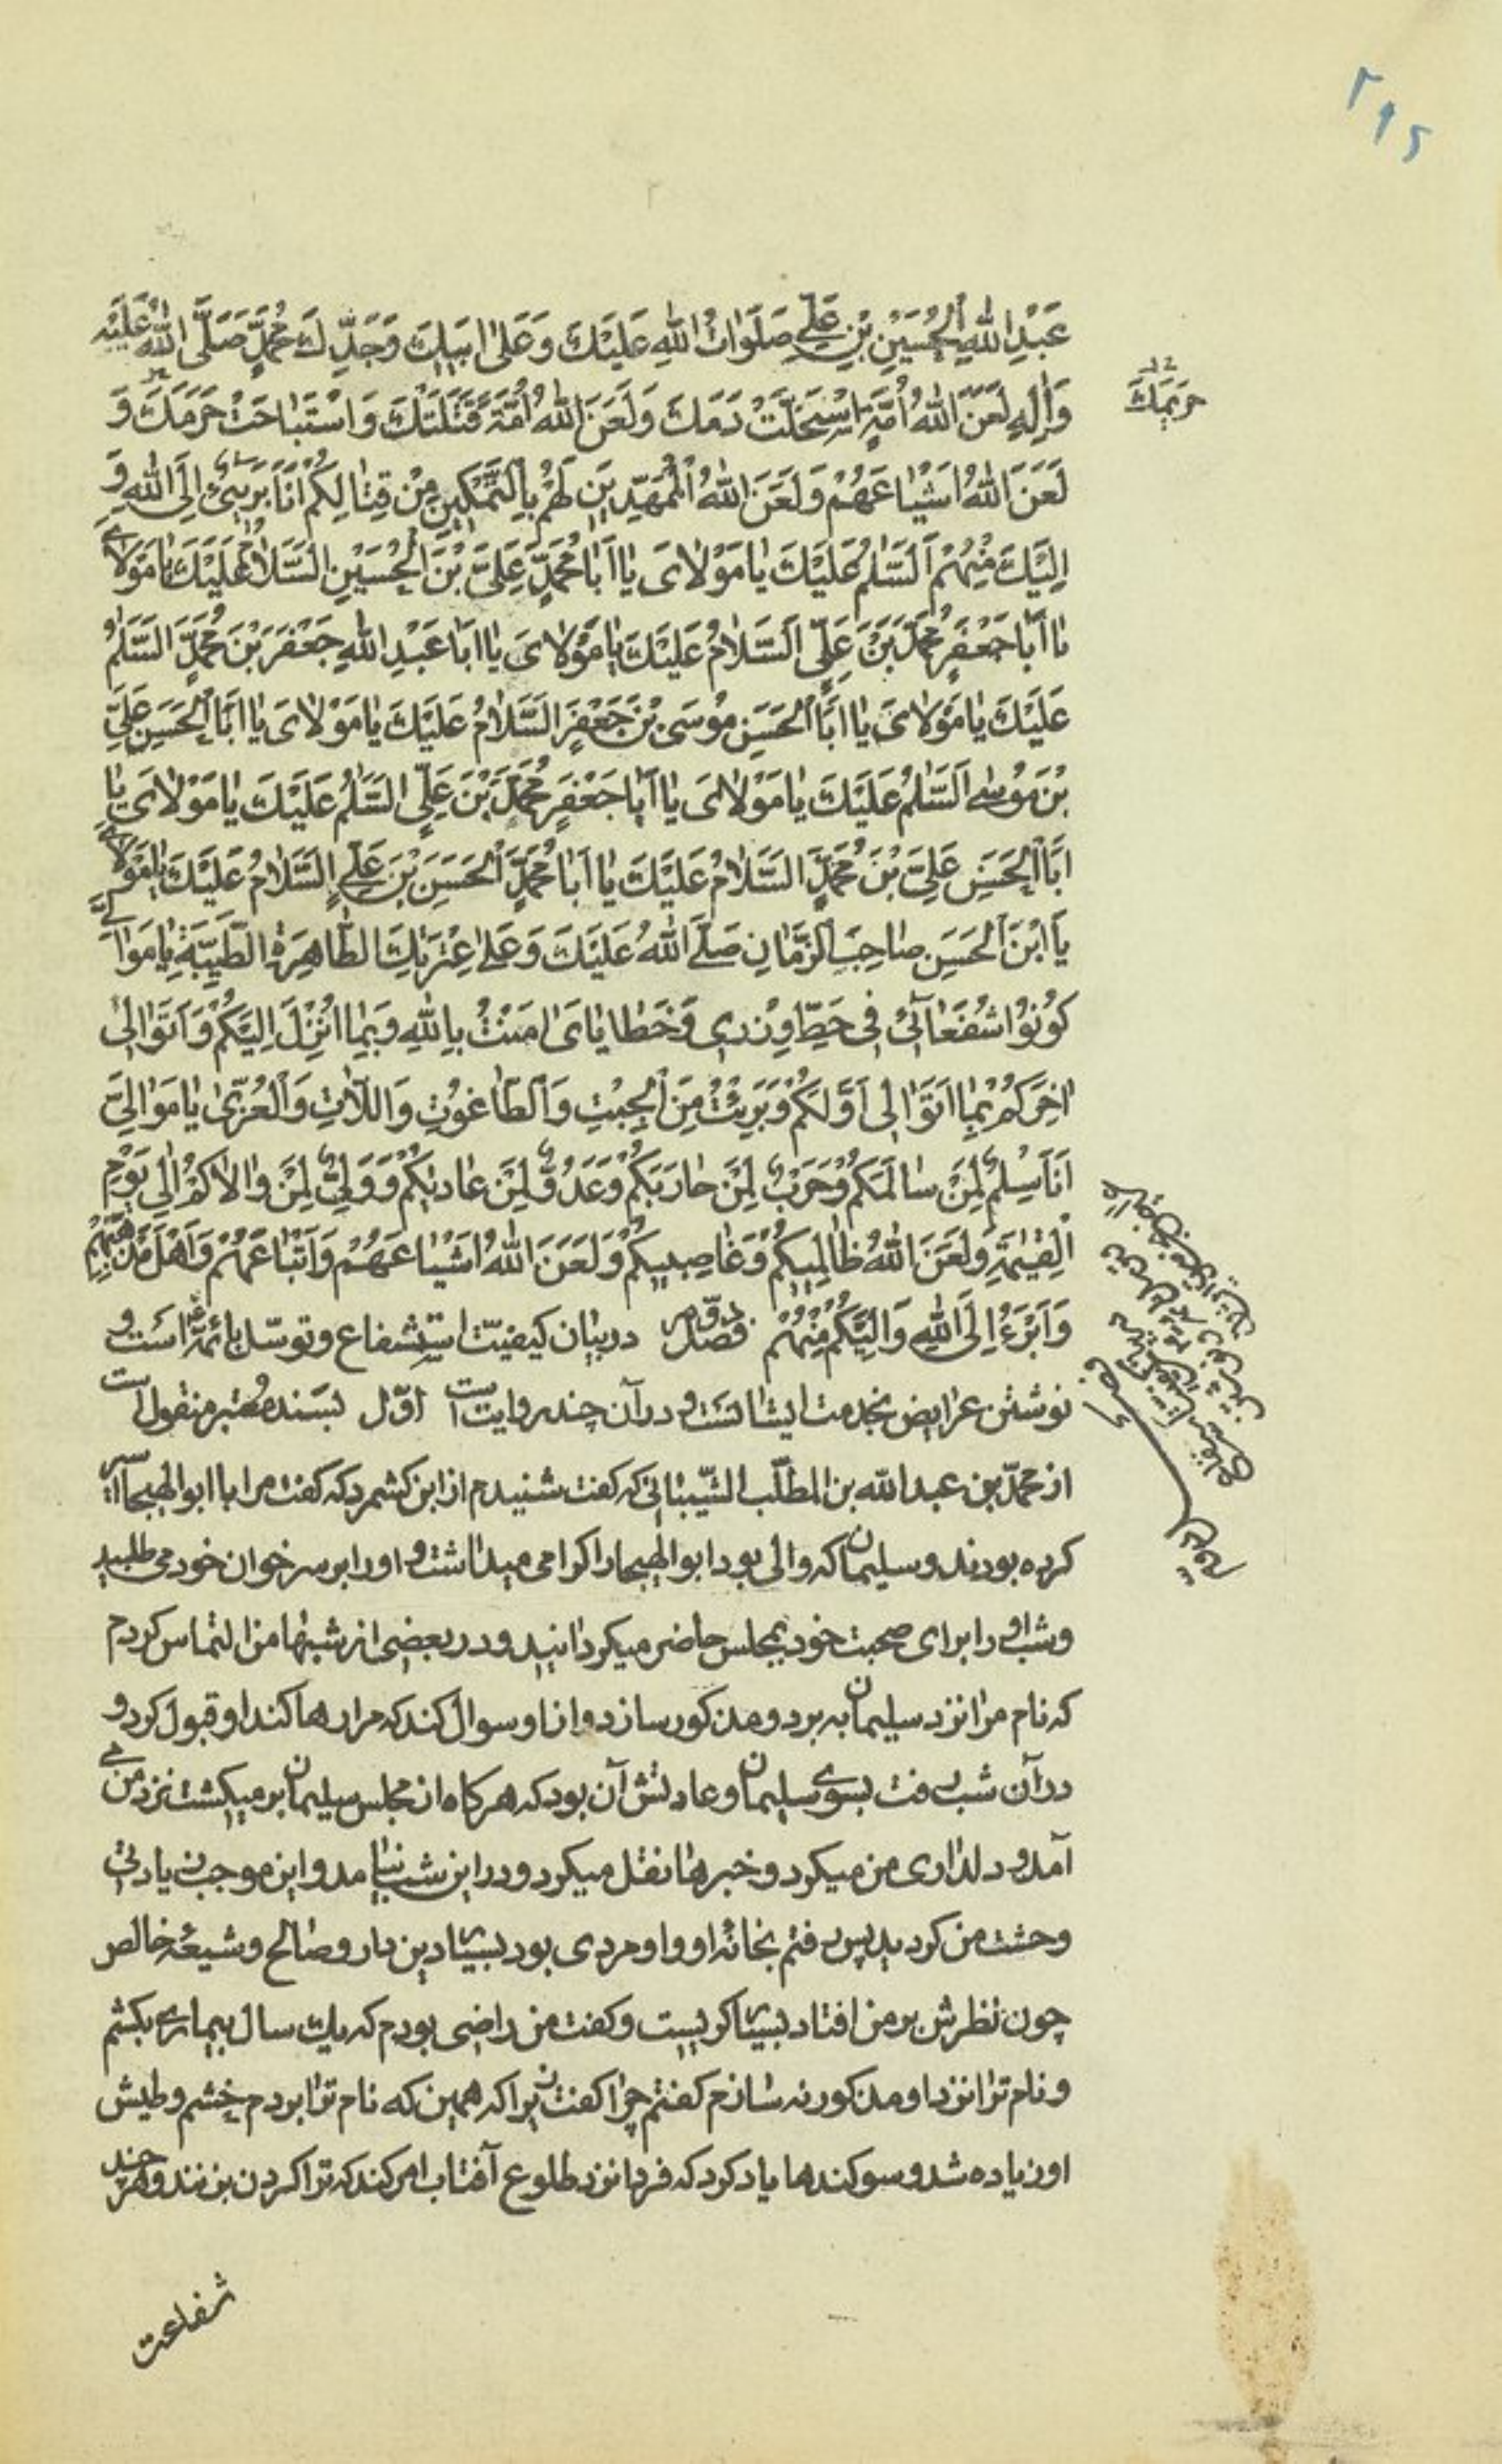 ۲۹۵
عَبْدِ اللهِ الْحُسَيْنِ بْنِ عَلِيٍّ صَلَوَاتُ اللهِ عَلَيْكَ وَعَلىٰ اَبيكَ وَجَدِّكَ مُحَمَّدٍ صَلَّى اللهُ عَلَيْهِ
وَاٰلِهِ لَعَنَ اللهُ اُمَّةً اسْتَحَلَّتْ دَمَكَ وَلَعَنَ اللهُ اُمَّةً قَتَلَتْكَ وَاسْتَبٰاحَتْ حَرَمَكَ وَ
حَريمَكَ
لَعَنَ اللهُ اَشْيٰاعَهُمْ وَلَعَنَ اللهُ الْمُمَهِّدِينَ لَهُمْ بِالتَّمْكِينِ مِنْ قِتٰالِكُمْ اَنَا بَرِىءٌ اِلَى اللهِ وَ
اِلَيْكَ مِنْهُمْ اَلسَّلٰمُ عَلَيْكَ يٰا مَوْلاٰىَ يٰا اَبٰا مُحَمَّدٍ عَلِىَّ بْنَ الْحُسَيْنِ السَّلاٰمُ عَلَيْكَ يٰا مَوْلاٰىَ
يٰا اَبٰا جَعْفَرٍ مُحَمَّدَ بْنَ عَلِىٍّ اَلسَّلاٰمُ عَلَيْكَ يٰا مَوْلاٰىَ يٰا اَبٰا عَبْدِ اللهِ جَعْفَرَ بْنَ مُحَمَّدٍ اَلسَّلٰمُ
عَلَيْكَ يٰا مَوْلاٰىَ يٰا اَبَا الْحَسَنِ مُوسَى بْنَ جَعْفَرٍ السَّلاٰمُ عَلَيْكَ يٰا مَوْلاٰىَ يٰا اَبَا الْحَسَنِ عَلِىَّ
بْنَ مُوسٰى اَلسَّلٰمُ عَلَيْكَ يٰا مَوْلاٰىَ يٰا اَبٰا جَعْفَرٍ مُحَمَّدَ بْنَ عَلِىٍّ السَّلٰمُ عَلَيْكَ يٰا مَوْلاٰىَ يٰا
اَبَا الْحَسَنِ عَلِىَّ بْنَ مُحَمَّدٍ السَّلاٰمُ عَلَيْكَ يٰا اَبٰا مُحَمَّدٍ الْحَسَنَ بْنَ عَلِىٍّ السَّلاٰمُ عَلَيْكَ يٰا مَوْلاٰىَ
يٰا ابْنَ الْحَسَنِ صٰاحِبَ الزَّمٰانِ صَلَّى اللهُ عَلَيْكَ وَعَلىٰ عِتْرَتِكَ الطّٰاهِرَةِ الطَّيِّبَةِ يٰا مَوٰالِىَّ
كُونُوا شُفَعٰآئى فى حَطِّ وِزْرى وَخَطٰايٰاىَ اٰمَنْتُ بِاللهِ وَبِمٰا اُنْزِلَ اِلَيْكُمْ وَاَتَوٰالىٰ
اٰخِرَكُمْ بِمٰا اَتَوٰالى اَوَّلَكُمْ وَبَرِئْتُ مِنَ الْجِبْتِ وَالطّٰاغُوتِ وَاللّاٰتِ وَالْعُزّىٰ يٰا مَوٰالِىَّ
اَنَا سِلْمٌ لِمَنْ سٰالَمَكُمْ وَحَرْبٌ لِمَنْ حٰارَبَكُمْ وَعَدُوٌّ لِمَنْ عٰادٰيكُمْ وَوَلِىٌّ لِمَنْ وٰالاٰكُمْ اِلىٰ يَوْمِ
الْقِيٰمَةِ وَلَعَنَ اللهُ ظٰالِميكُمْ وَغٰاصِبيكُمْ وَلَعَنَ اللهُ اَشْيٰاعَهُمْ وَاَتْبٰاعَهُمْ وَاَهْلَ مَذْهَبِهِمْ
وَاَبْرَءُ اِلَى اللهِ وَاِلَيْكُمْ مِنْهُمْ فصل دوّم در بيان كيفيّت استشفاع و توسّل بائمّه است و
نوشتن عرايض بخدمت ايشانست و در آن چند روايت است اوّل بسند معتبر منقول است
از محمّد بن عبد الله بن المطلّب الشّيبانى كه كفت شنيدم از ابن كشمرد كه كفت مرا با ابو الهيجا اسير
كرده بودند و سليمان كه والى بود ابو الهيجا را كرامى ميداشت و او را بر سر خوان خود مى طلبيد
و شب او را براى صحبت خود بمجلس حاضر ميكردانيد و در بعضى از شبها من از او التماس كردم
كه نام مرا نزد سليمان به برد و مذكور سازد و از او سوال كند كه مرا رها كند او قبول كرد و
در آن شب رفت بسوى سليمان و عادتش آن بود كه هر كاه از مجلس سليمان بر ميكشت نزد من مى
آمد و دلدارى من ميكرد و خبرها نقل ميكرد و در اين شب نيامد و اين موجب زيادتى
وحشت من كرديد پس رفتم بخانهٔ او و او مردى بود بسيار دين دار و صالح و شيعهٔ خالص
چون نظرش بر من افتاد بسيار كريست و كفت من راضى بودم كه يك سال بيمارى بكشم
و نام ترا نزد او مذكور نه سازم كفتم چرا كفت زيرا كه همين كه نام ترا بردم خشم و طيش
او زياده شد و سوكندها ياد كرد كه فردا نزد طلوع آفتاب امر كند كه ترا كردن بزنند و هر چند
شفاعت